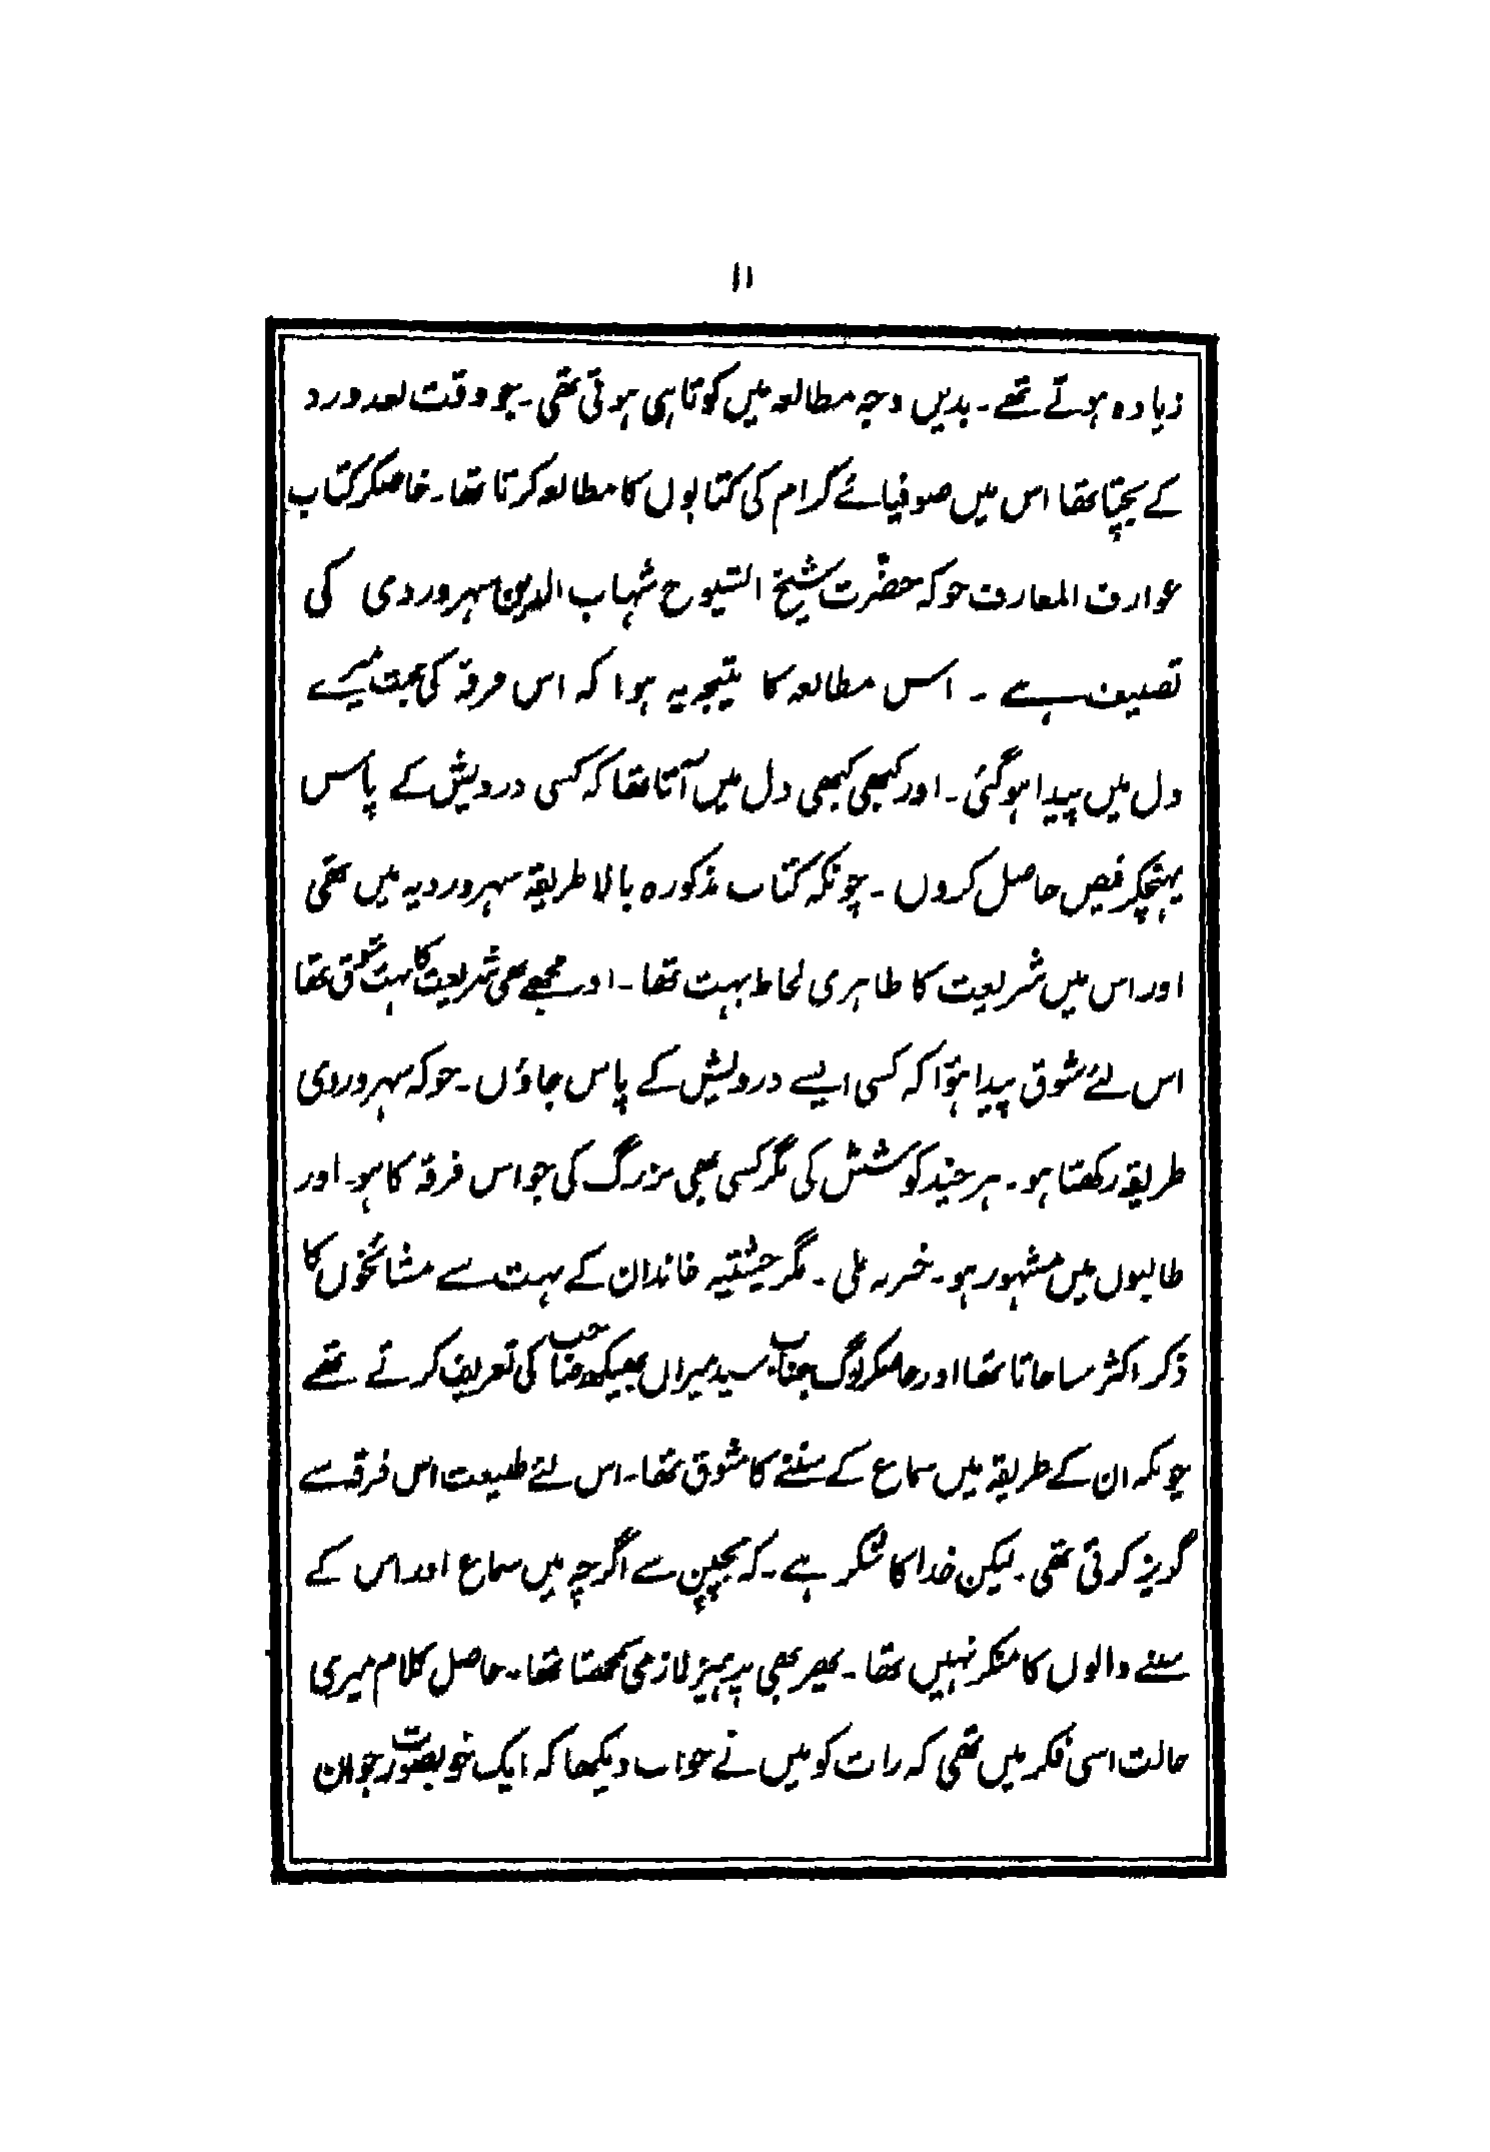 ۱۱
زیادہ ہوتے تھے۔ بدیں وجہ مطالعہ میں کوتاہی ہوتی تھی۔ جو وقت بعد ورد
کے بچتا تھا اس میں صوفیائے کرام کی کتابوں کا مطالعہ کرتا تھا۔ خاصکر کتاب
عوارف المعارف جو کہ حضرت شیخ الشیوخ شہاب الدین سہروردی کی
تصنیف ہے ۔ اس مطالعہ کا نتیجہ یہ ہوا کہ اس فرقہ کی محبت میرے
دل میں پیدا ہوگئی۔ اور کبھی کبھی دل میں آتا تھا کہ کسی درویش کے پاس
پہنچکر فیض حاصل کروں ۔ چونکہ کتاب مذکورہ بالا طریقہ سہروردیہ میں تھی
اور اس میں شریعت کا ظاہری لحاظ بہت تھا ۔ اور مجھے بھی شریعت کا بہت شوق تھا
اس لئے شوق پیدا ہؤا کہ کسی ایسے درویش کے پاس جاؤں ۔ جو کہ سہروردی
طریقہ رکھتا ہو۔ ہر چند کوشش کی مگر کسی بھی بزرگ کی جو اس فرقہ کا ہو۔ اور
طالبوں میں مشہور ہو۔ خبر نہ ملی ۔ مگر چشتیہ خاندان کے بہت سے مشائخوں کا
ذکر اکثر سنا جاتا تھا اور خاصکر لوگ جناب سید میراں بھیکھ صاحب کی تعریف کرتے تھے
چونکہ ان کے طریقہ میں سماع کے سننے کا شوق تھا۔ اس لئے طبیعت اس فرقہ سے
گریز کرتی تھی۔ لیکن خدا کا شکر ہے۔ کہ بچپن سے اگرچہ میں سماع اور اس کے
سننے والوں کا منکر نہیں تھا ۔ پھر بھی پرہیز لازمی سمجھتا تھا۔ حاصل کلام میری
حالت اسی فکر میں تھی کہ رات کو میں نے خواب دیکھا کہ ایک خوبصورت جوان